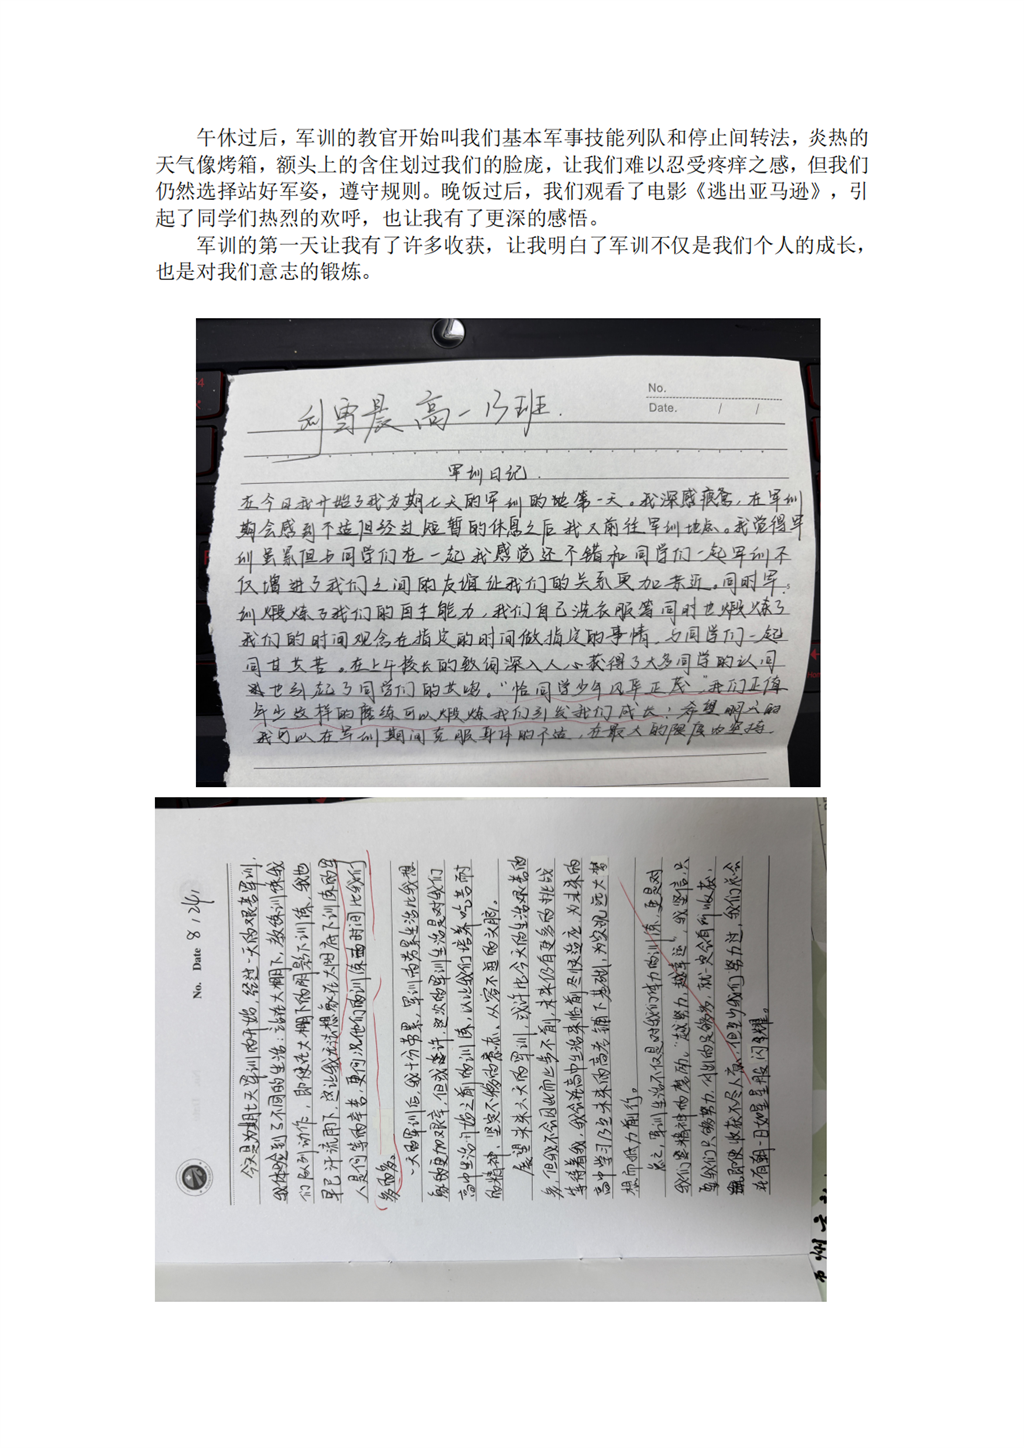 午休过后，军训的教官开始叫我们基本军事技能列队和停止间转法，炎热的
天气像烤箱，额头上的含住划过我们的脸庞，让我们难以忍受疼痒之感，但我们
仍然选择站好军姿，遵守规则。晚饭过后，我们观看了电影《逃出亚马逊》，引
起了同学们热烈的欢呼，也让我有了更深的感悟。
军训的第一天让我有了许多收获，让我明白了军训不仅是我们个人的成长，
也是对我们意志的锻炼。
No.
Date. / /
刘雪晨 高一13班.
军训日记.
在今日我开始了我为期七天的军训的第一天。我深感疲惫，在军训
期会感到不适但经过短暂的休息之后我又前往军训地点。我觉得军
训虽累但与同学们在一起我感觉还不错和同学们一起军训不
仅增进了我们之间的友谊让我们的关系更加亲近。同时军
训煅炼了我们的自主能力，我们自己洗衣服等同时也煅炼了
我们的时间观念在指定的时间做指定的事情，与同学们一起
同甘共苦。在上午校长的致词深入人心获得了大多同学的认同
也引起了同学们的共鸣。“恰同学少年风华正茂”我们正值
年少这样的磨练可以煅炼我们引发我们成长！希望明天的
我可以在军训期间克服身体的不适，在最大的限度内坚持.
No. Date 8/24
今天是为期七天军训的开始，经过一天的艰苦军训，
我体验到了不同的生活：站在大棚下，教练训练我
们队列动作，即使在大棚下的阴影下训练，我也
早已汗流雨下，这让我无法想象在大太阳底下训练的军
人是何等的辛苦，更何况他们的训练的时间比我们
多的多。
一天的军训后，我十分劳累，军训的劳累生活比我想
象的更加艰辛，但或许，这次的军训生活是对我们
高中生活开始之前的训练，以让我们培养吃苦耐
的精神，坚定不移的意志、从容不迫的文胆。
展望未来六天的军训，或许比今天的生活艰苦的
多，但我不会因此而止步不前，未来仍有更多的挑战
等待着我，我会在高中生活来临前尽快适应，为未来的
高中学习乃至未来的高考铺下基础，为实现远大梦
想而抵力前行。
总之，军训生活不仅是对我们体力的训练，更是对
我们苦精神的磨历，“越努力，越幸运”，我坚信，只
要我们只够努力，付出的足够多，就一定会有所收获，
即使收获不尽人意，但至少我们努力过，我们总会
在有朝一日如星星般闪耀。